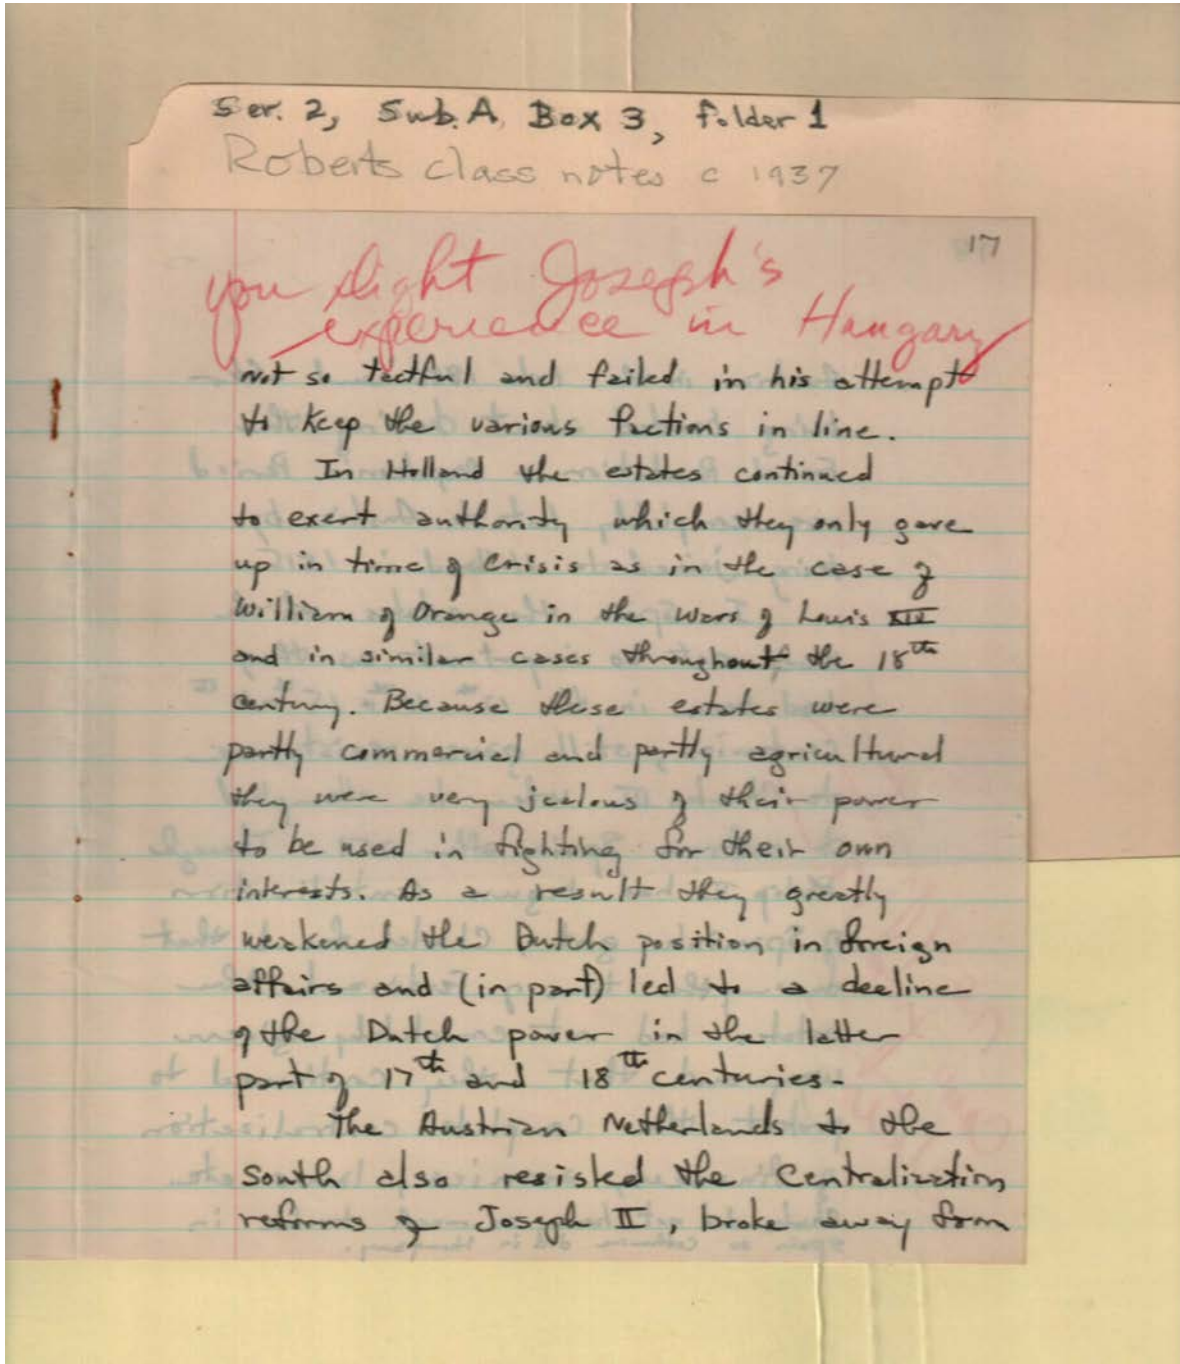 Ser. 2, Sub. A, Box 3, folder 1
Roberts class notes c 1937
17
you slight Joseph's
experience in Hungary
not so tactful and failed in his attempt
to keep the various factions in line.
In Holland the estates continued
to exert authority which they only gave
up in time of crisis as in the case of
William of Orange in the Wars of Louis XIV
and in similar cases throughout the 18th
century. Because these estates were
partly commercial and partly agricultural
they were very jealous of their power
to be used in fighting for their own
interests. As a result they greatly
weakened the Dutch position in foreign
affairs and (in part) led to a decline
of the Dutch power in the latter
part of 17th and 18th centuries.
The Austrian Netherlands to the
South also resisted the Centralization
reforms of Joseph II, broke away from